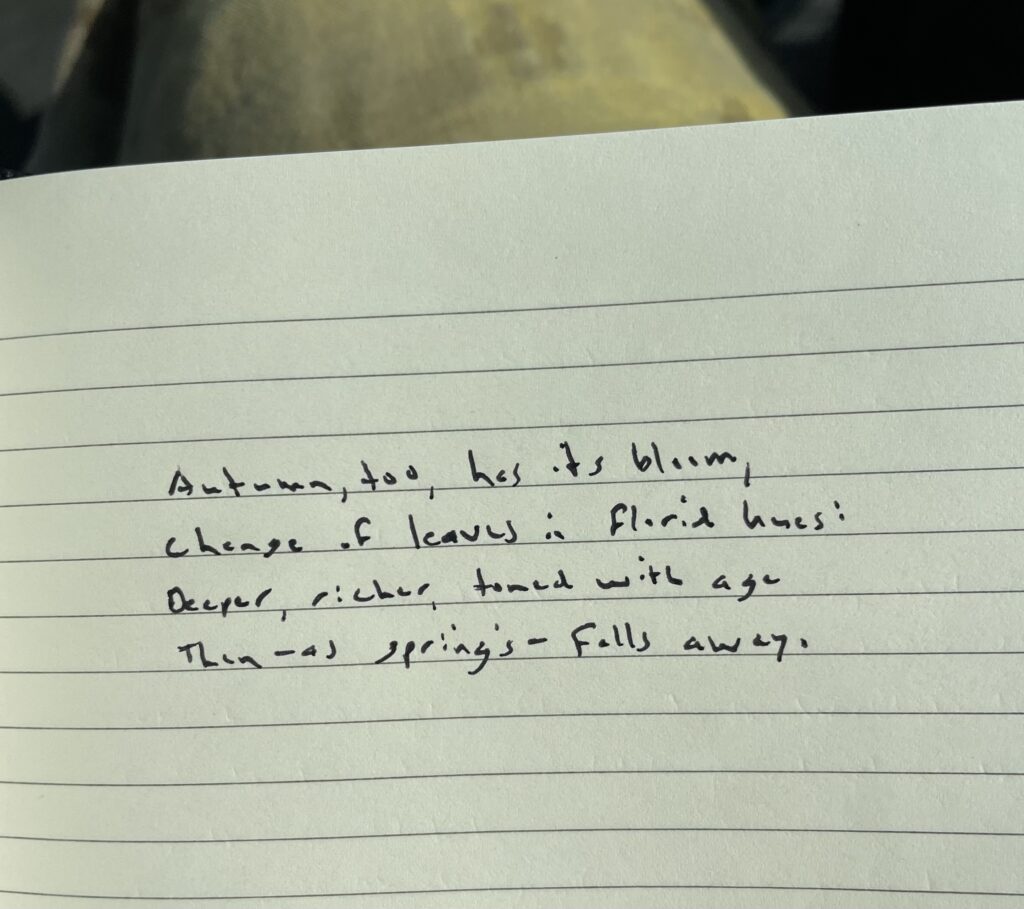 Autumn, too, has its bloom,
Change of leaves in florid hues:
Deeper, richer, toned with age
Then - as spring's - falls away.